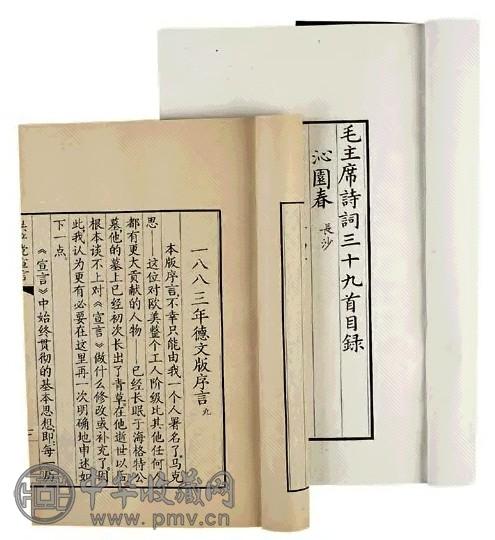 毛主席詩詞三十九首目録
沁園春
長沙
一八八三年德文版序言
九
本版序言,不幸只能由我一个人署名了。马克
思——这位对欧美整个工人阶级比其他任何
都有更大贡献的人物——已经长眠于海格特公
墓,他的墓上已经初次长出了青草。在他逝世以后
根本谈不上对《宣言》做什么修改或补充了。因
此我认为更有必要在这里再一次明确地申述如
下一点。
《宣言》中始终贯彻的基本思想,即:每一历
共产党宣言
中华收藏网
www.pmv.cn